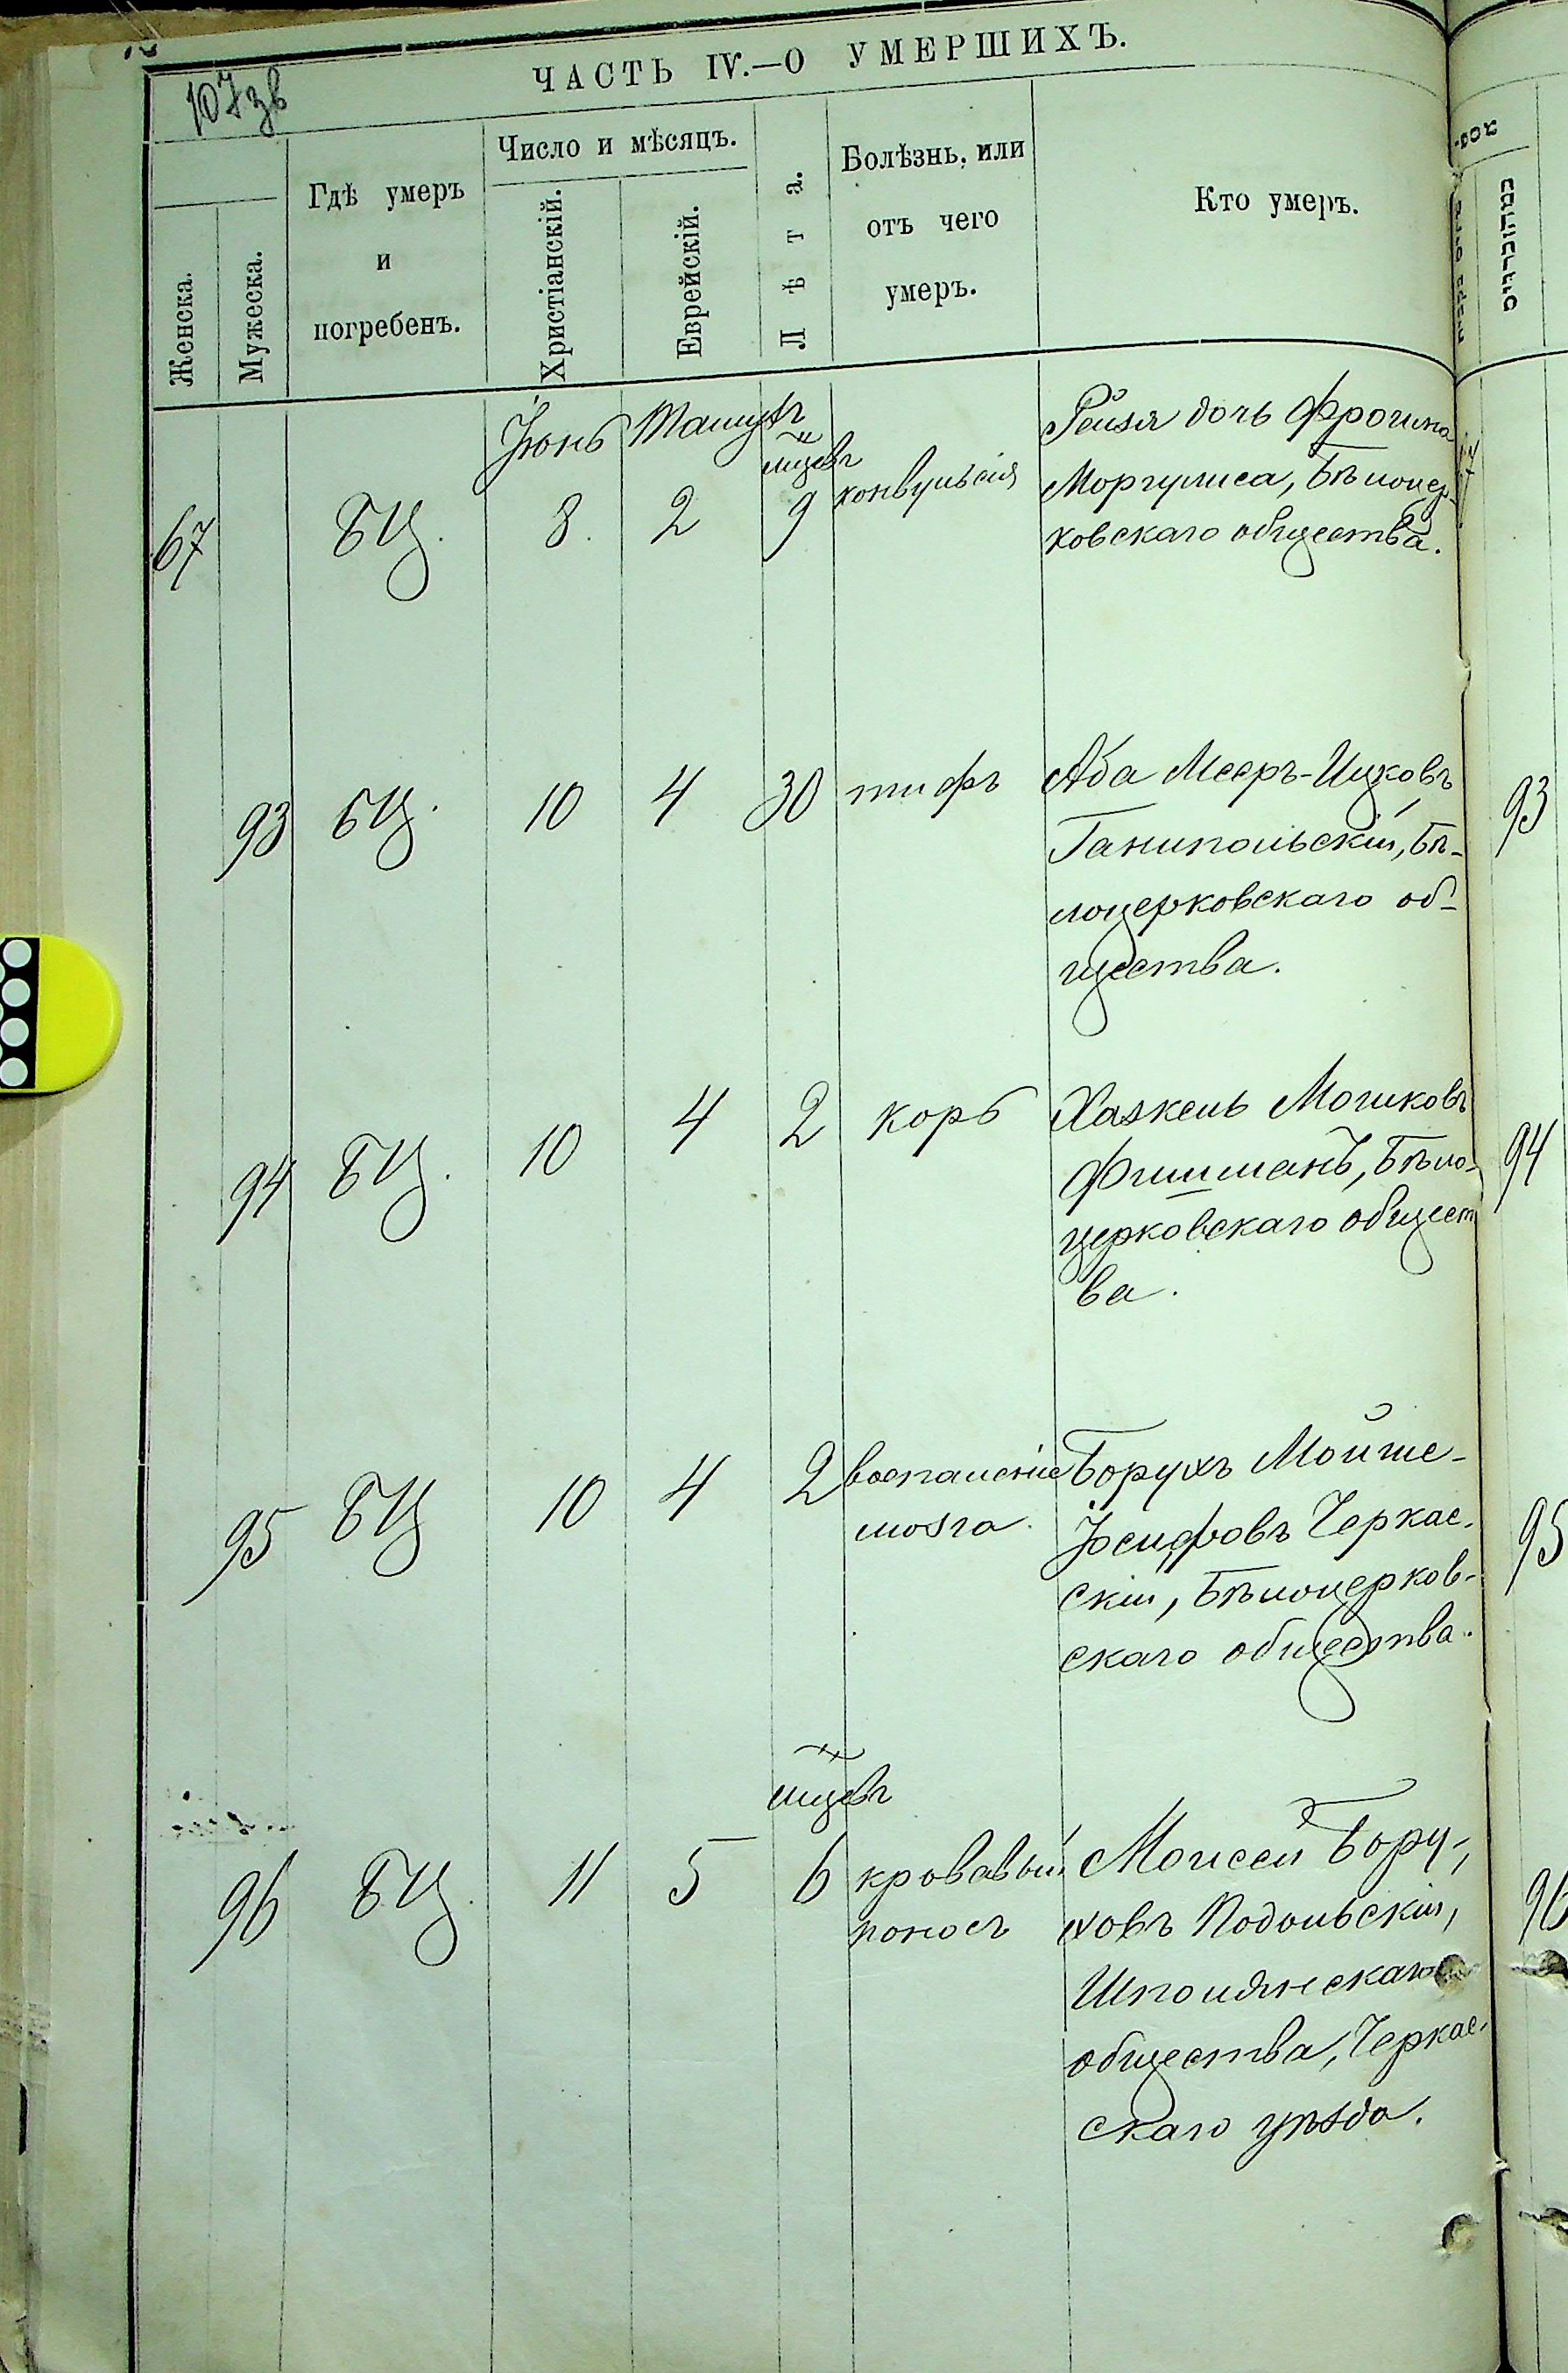 107 зв
ЧАСТЬ IV.—О УМЕРШИХЪ.
Женска.
Мужеска.
Гдѣ умеръ
и
погребенъ.
Число и мѣсяцъ.
Христіанскій.
Еврейскій.
Лѣта.
Болѣзнь, или
отъ чего
умеръ.
Кто умеръ.
Іюнь Тамуз
67 БЦ. 8. 2 мцевъ 9 конвульсія Рейзя дочь Фроима
Моргулиса, Бѣлоцер-
ковскаго общества.
93 БЦ. 10 4 30 тифъ Аба Мееръ-Ицковъ 93
Ганипольскій, Бѣ-
лоцерковскаго об-
щества.
94 БЦ. 10 4 2 корь Хазкель Мошковъ 94
Фишманъ, Бѣло-
церковскаго общест
ва.
95 БЦ 10 4 2 воспаленіе Борухъ Мойше- 95
мозга. Іосифовъ Черкас-
скій, Бѣлоцерков-
скаго общества.
мцевъ
96 БЦ. 11 5 6 кровавый Моисей Бору- 96
поносъ ховъ Подольскій,
Шполянскаго
общества, Черкас-
скаго уѣзда.